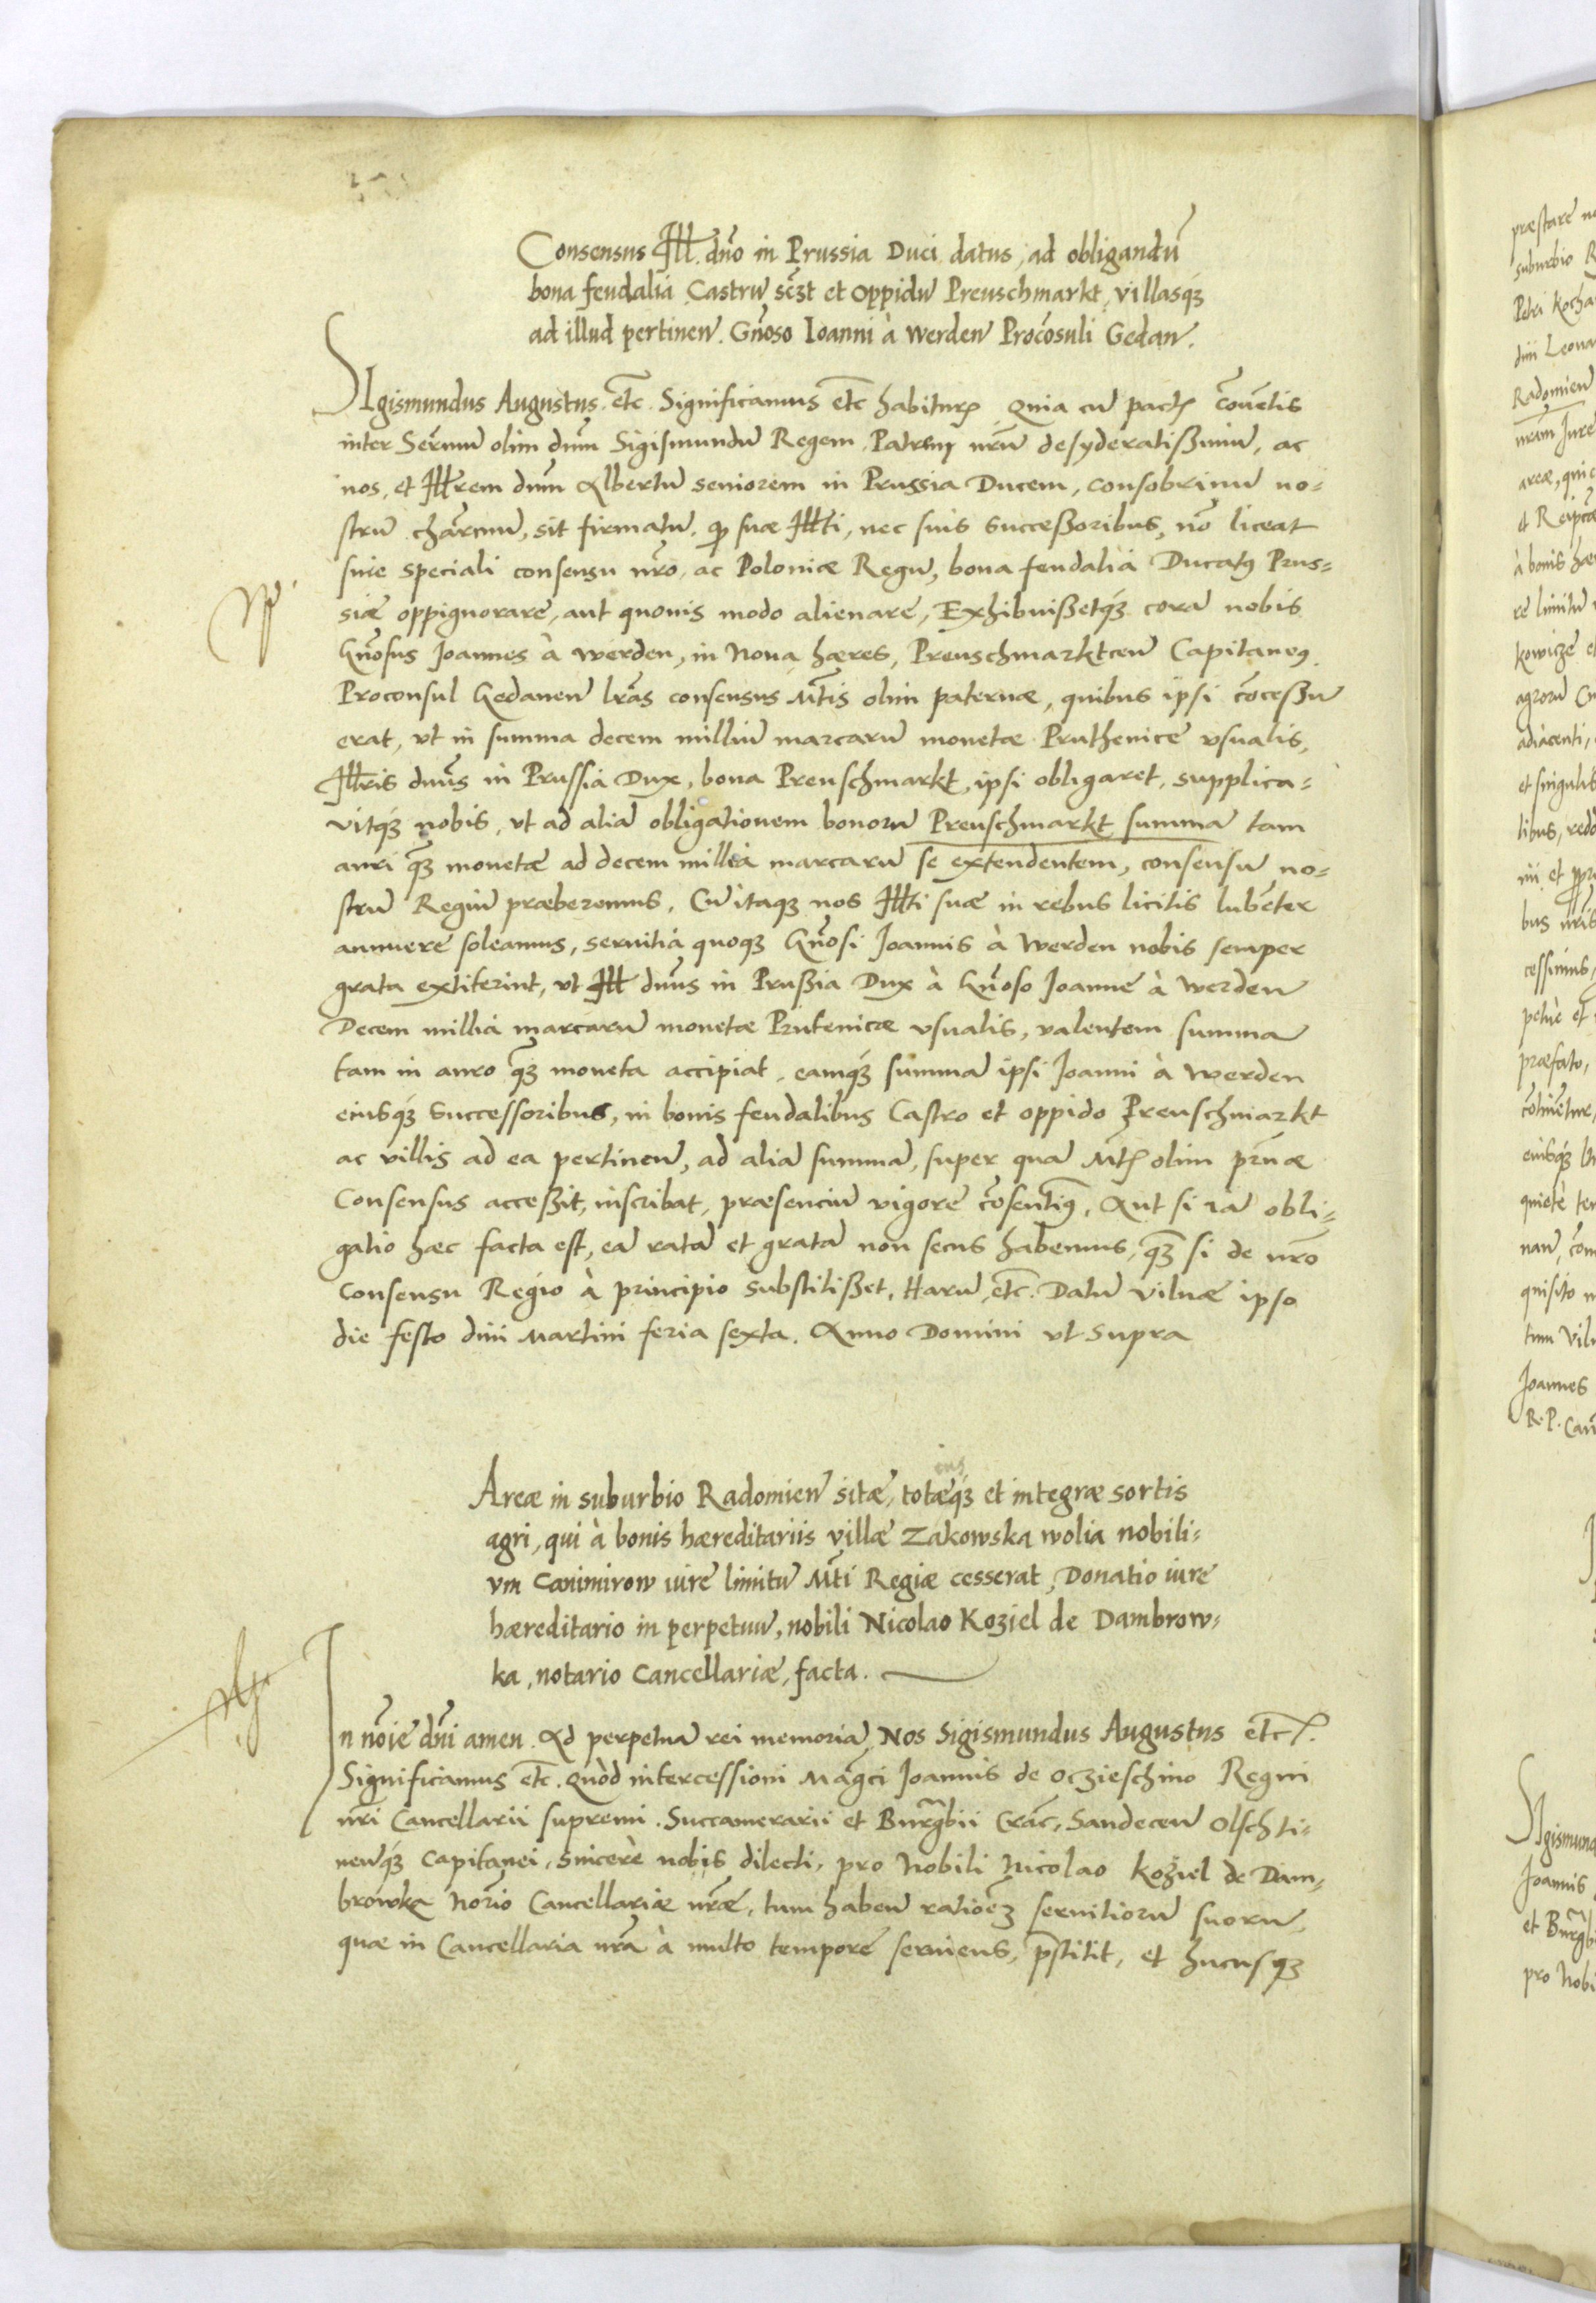 Consensus Ill. dño in Prussia Duci datus, ad obligandū
bona feudalia Castrū scz et oppidū Preuschmarkt, villasq́ȝ
ad illud pertinen. Gñoso Ioanni à Werden Procōsuli Gedan.
SIgismundus Augustus. etc̃. Significamus etc̃ habitur, Quia cū pact, cōuētis
inter Serm̄ū olim dūm Sigismundū Regem Patrem nr̄ū desyderatißimū, ac
nos, et Illrem dūm Albertū seniorem in Prussia Ducem, consobrinū no=
strū chārmū, sit firmatū, qɔ suæ Illti, nec suis Succeßoribus, nō liceat
sine speciali consensu nr̄o, ac Poloniæ Regū, bona feudalia Ducatꝰ Prus=
siæ oppignorare, aut quouis modo alienare, Exhibuißetq́ȝ corā nobis
Gñosus Joannes à Werden, in Noua hæres, Preuschmarkten Capitaneꝰ
Proconsul Gedanen lr̄as consensus Mt̄is olim paternæ, quibus ipsi cōceßū
erat, vt in summa decem milliū marcarū monetæ Pruthenice vsualis,
Illris dn̄us in Prussia Dux, bona Preuschmarkt, ipsi obligaret, supplica=
vitq́ȝ nobis, vt ad aliā obligationem bonorū Preuschmarkt summā tam
auri q̄ȝ monetæ ad decem millia marcarū se extendentem, consensū no=
strū Regiū præberemus. Cū itaqȝ nos Illti suæ in rebus licitis lubēter
annuere soleamus, seruitia quoqȝ Gñosi Joannis à Werden nobis semper
grata extiterint, vt Ill dn̄us in Prußia Dux à Gñoso Joanne à Werden
Decem millia marcarū monetæ Prutenicæ vsualis, valentem summā
tam in auro q̄ȝ moneta accipiat, eamq́ȝ summā ipsi Joanni à Werden
eiusq́ȝ Successoribus, in bonis feudalibus Castro et oppido Preuschmarkt
ac villis ad ea pertinen, ad aliā summā, super quā Mt, olim pr̄næ
Consensus acceßit, inscribat, præsenciū vigore cōsentimꝰ, Aut si iā obli=
gatio hæc facta est, eā ratā et gratā non secus habemus, q̄ȝ si de nr̄o
consensu Regio à principio substitißet, Harū etc̃. Datū Vilnæ ipso
die festo diui Martini feria sexta. Anno Domini vt supra
Areæ in suburbio Radomien sitæ, totæq́ȝ et integræ sortis
agri, qui à bonis hæreditariis villæ Zakowska wolia nobili=
vm Canimirow iure limitū Mt̄i Regiæ cesserat, Donatio iure
hæreditario in perpetuū, nobili Nicolao Koziel de Dambrow=
ka, notario Cancellariæ, facta.
In nōie dn̄i amen. Ad perpetuā rei memoriā, Nos Sigismundus Augustus etc̃.
Significamus etc̃. quòd intercessioni Magci Joannis de Oczieschino Regni
nr̄i Cancellarii supremi. Succamerarii et Burgbii Crac̃, Sandecen Olschti=
nenq́ȝ Capitanei, sincerè nobis dilecti, pro Nobili Nicolao Koziel de Dam=
browka Norio Cancellariæ nr̄æ, tum haben ratiōeȝ seruitiorū suorū,
quæ in Cancellaria nr̄a à multo tempore seruiens, p̄stitit, et hucusqȝ